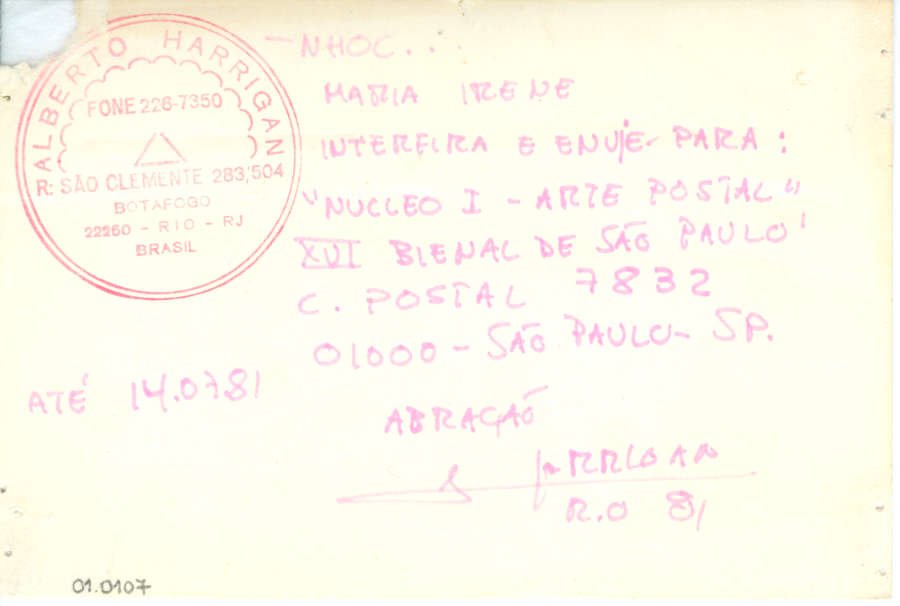 ALBERTO HARRIGAN
FONE 226-7350
R: SÃO CLEMENTE 283/504
BOTAFOGO
22260 - RIO - RJ
BRASIL
- NHOC...
MARIA IRENE
INTERFIRA E ENVIE PARA:
"NUCLEO I - ARTE POSTAL"
XVI BIENAL DE SÃO PAULO
C. POSTAL 7832
01000 - SÃO PAULO - SP.
ATÉ 14.07.81
ABRAÇÃO
HARRIGAN
RIO 81
01.0107